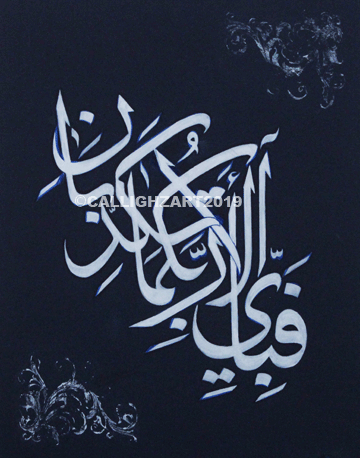 فَبِأَيِّ آلَاءِ رَبِّكُمَا تُكَذِّبَانِ
©CALLIGHZART2019